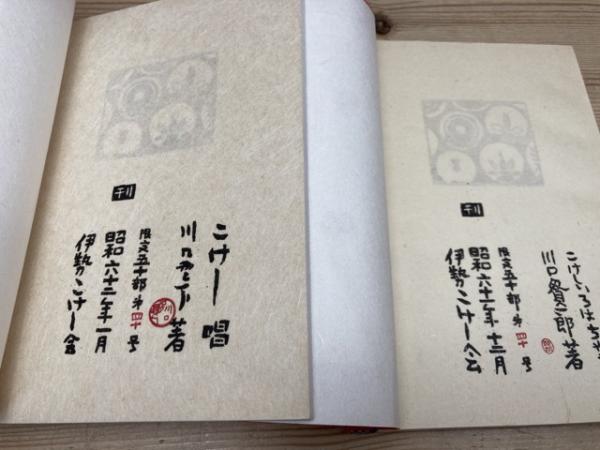 こけし唱
著
限定五十部第四十号
昭和六十二年一月
伊勢こけし会
刊
こけしいろはちや
川口貸二郎著
限定五十部第四十号
昭和六十一年十二月
伊勢こけし会
刊